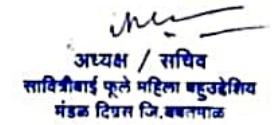 अध्यक्ष / सचिव
सावित्रीबाई फूले महिला बहुउद्देशिय
मंडळ दिग्रस जि.यवतमाळ